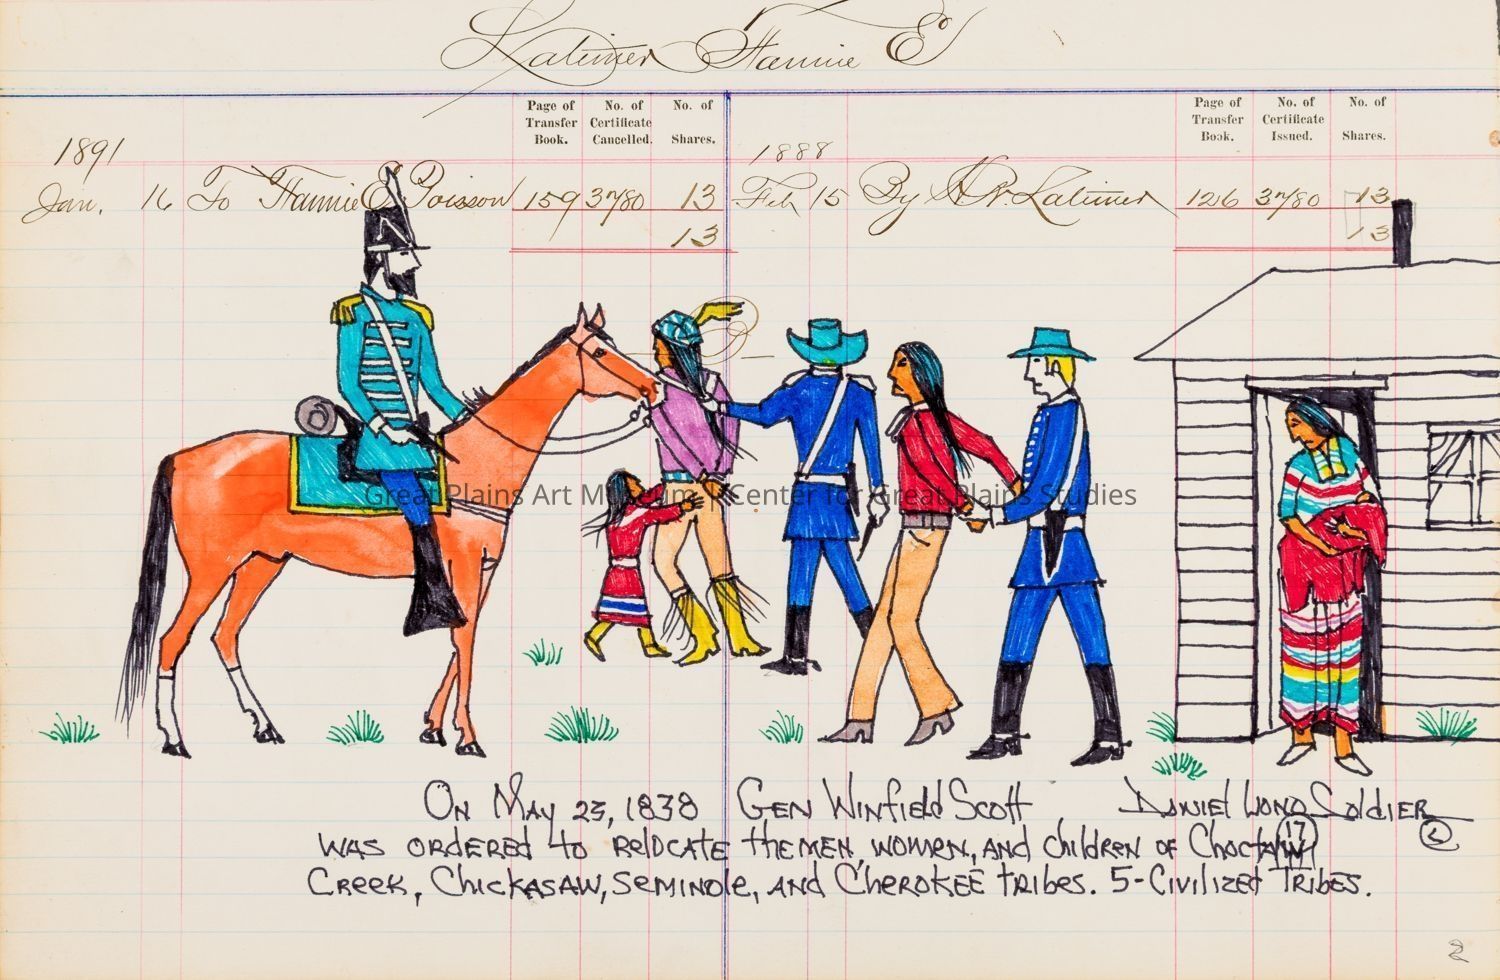 Latimer Hannie E
Page of Transfer Book. No. of Certificate Cancelled. No. of Shares. Page of Transfer Book. No. of Certificate Issued. No. of Shares.
1891 1888
Jan. 16 To Hannie E Poisson 159 3780 13 Feb 15 By Latimer 126 3780 13
13 13
Great Plains Art Museum | Center for Great Plains Studies
On May 23, 1838 Gen Winfield Scott Daniel Long Soldier
was ordered to relocate the men, women, and children of Choctaw 17
Creek, Chickasaw, Seminole, and Cherokee tribes. 5-Civilized Tribes.
2